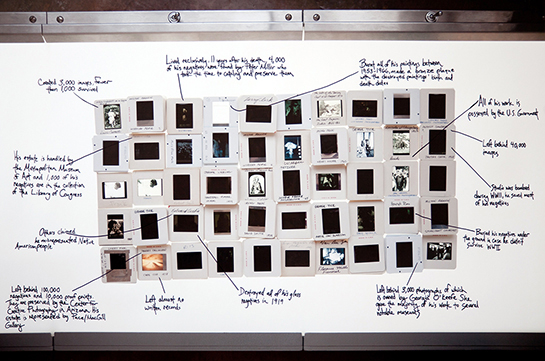 Lived exclusively. 11 years after his death, 4,000
of his negatives were found by Peter Miller who
took the time to catalog and preserve them
Burnt all of his paintings between
1953-1966, made a bronze plaque
with the destroyed paintings' birth and
death dates
Created 3,000 images. Fewer
than 1,000 survived
All of his work is
preserved by the U.S.
Left behind 40,000
images
His estate is handled by
the Metropolitan Museum
of Art and 1,000 of his
negatives are in the collection
of the Library of Congress
Studio was bombed
during WWII, he saved most
of his negatives
Others claimed
he misrepresented Native
American people
Buried his negatives under
the ground in case he didn't
survive WWII
Left behind 100,000
negatives and 10,000 proof prints.
They are preserved by the Center
Creative Photography in Arizona. His
estate is represented by Pace/MacGill
Gallery
Left almost no
written records
Destroyed all of his glass
negatives in 1919
Left behind 3,000 photographs of which
is owned by Georgia O'Keefe. She
gave the majority of his work to several
notable museums